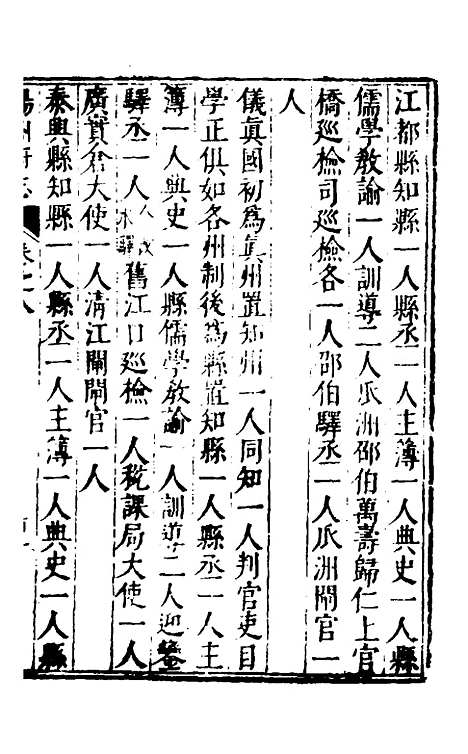 江都縣知縣一人縣丞二人主簿一人典史一人縣
儒學教諭一人訓導二人瓜洲邵伯萬壽歸仁上官
橋廵檢司廵檢各一人邵伯驛丞一人瓜洲閘官一
人
儀眞國初為眞州置知州一人同知一人判官吏目
學正俱如各州制後為縣置知縣一人縣丞二人主
簿一人典史一人縣儒學教諭一人訓導二人迎鑾
驛丞一人舊江口廵檢一人稅課局大使一人
廣實倉大使一人清江閘閘官一人
泰興縣知縣一人縣丞二人主簿一人典史一人縣